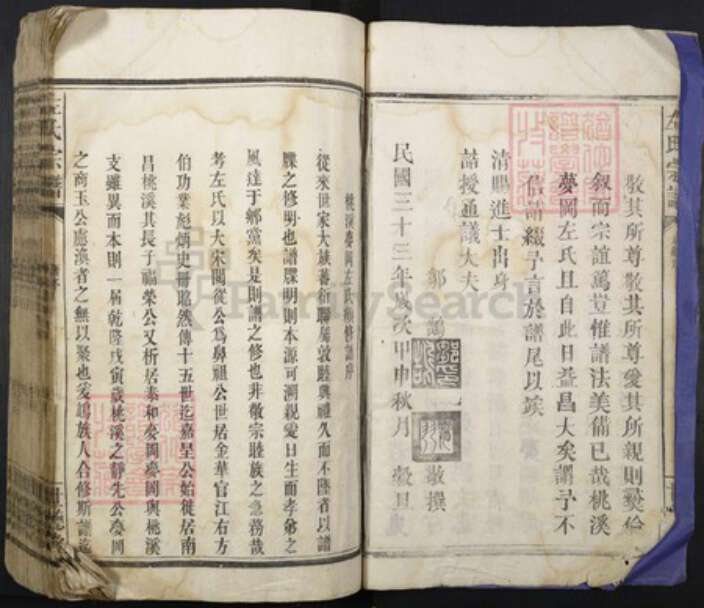 敬其所尊敬其所尊愛其所親則彝倫
敘而宗誼篤豈惟譜法美備已哉桃溪
夢岡左氏且自此日益昌大矣謂予不
信請綴予言於譜尾以竢
清賜進士出身
誥授通議大夫
鄒 敬撰
民國三十三年歲次甲申秋月 穀旦
桃溪夢岡左氏 修譜序
從來世家大族蕃衍聯屬敦睦興禮久而不墜者以譜
牒之修明也譜牒明則本源可溯親愛日生而孝弟之
風達于鄉黨矣是則譜之修也非敬宗睦族之急務哉
考左氏以大宋閣從公為鼻祖公世居金華官江右方
伯功業彪炳史冊昭然傳十五世迄嘉呈公始徙居南
昌桃溪其長子福榮公又析居泰和夢岡夢岡與桃溪
支雖異而本則一屆乾隆戊寅歲桃溪之靜先公夢岡
之商玉公慮渙者之無以聚也爰鳩族人合修斯譜迄
左氏宗譜
FamilySearch